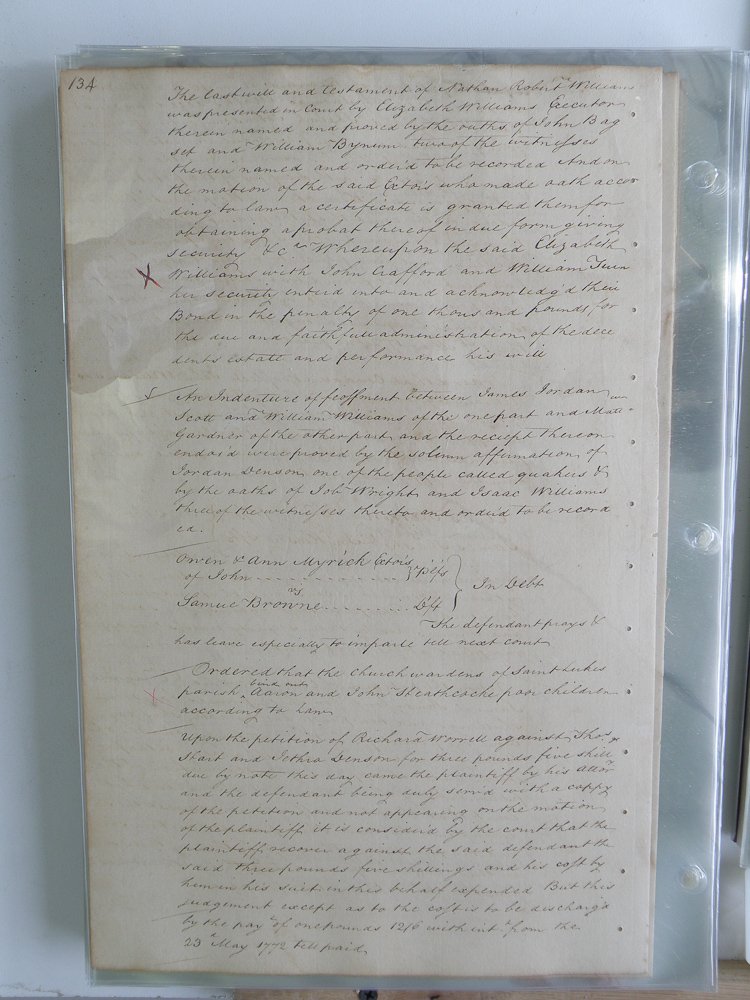 134
The last will and testament of Nathan Robert Williams
was presented in Court by Elizabeth Williams Executor
therein named and proved by the oaths of John Bag
set and William Bynum two of the witnesses
therein named and order'd to be recorded And on
the motion of the said Extors who made oath accor
ding to law a certificate is granted them for
obtaining a probat thereof in due form giving
security &c Whereupon the said Elizabeth
Williams with John Crafford and William Turn
her security enter'd into and acknowledg'd their
Bond in the penalty of one thousand pounds for
the due and faithfull administration of the dece
dents estate and performance his will
An Indenture of feoffment between James Jordan
Scott and William Williams of the one part and Matt
Gardner of the other part and the reciept thereon
endors'd were proved by the solemn affirmation of
Jordan Denson one of the people called quakers &
by the oaths of Job Wright and Isaac Williams
three of the witnesses thereto and order'd to be record
ed.
Owen & Ann Myrick Extors
of John Pltfs
vs In Debt
Samuel Browne Dft
The defendant prays &
has leave especially to imparle till next court
Ordered that the church wardens of Saint Lukes
parish bind out Aaron and John Heathcocke poor children
according to Law
Upon the petition of Richard Worrell against Thos
Hart and Jethro Denson for three pounds five shill
due by note this day came the plaintiff by his attor
and the defendant being duly serv'd with a coppy
of the petition and not appearing on the motion
of the plaintiff it is consider'd by the court that the
plaintiff recover against the said defendant the
said three pounds five shillings and his cost by
him in his suit in this behalf expended But this
judgement except as to the cost is to be discharg'd
by the pay of one pounds 12/6 with int from the
23 May 1772 till paid